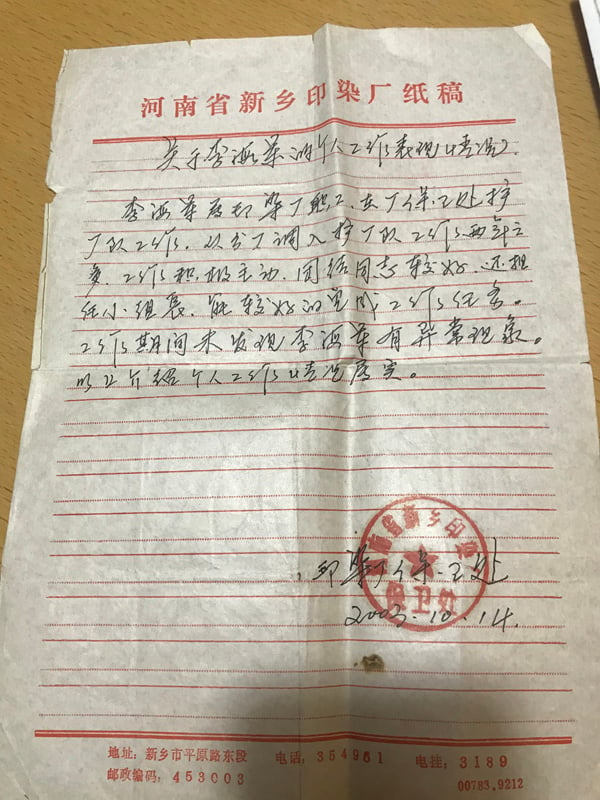 河南省新乡印染厂纸稿
关于李海军的个人工作表现情况
李海军原印染厂职工，在厂保卫处护
厂队工作，从分厂调入护厂队工作两年之
多，工作积极主动，团结同志较好，还担
任小组长，能较好的完成工作任务。
工作期间未发现李海军有异常现象。
以上介绍个人工作情况属实。
河南省新乡印染
保卫处
印染厂保卫处
2003.10.14.
地址：新乡市平原路东段 电话：354961 电挂：3189
邮政编码：453003 00783.9212